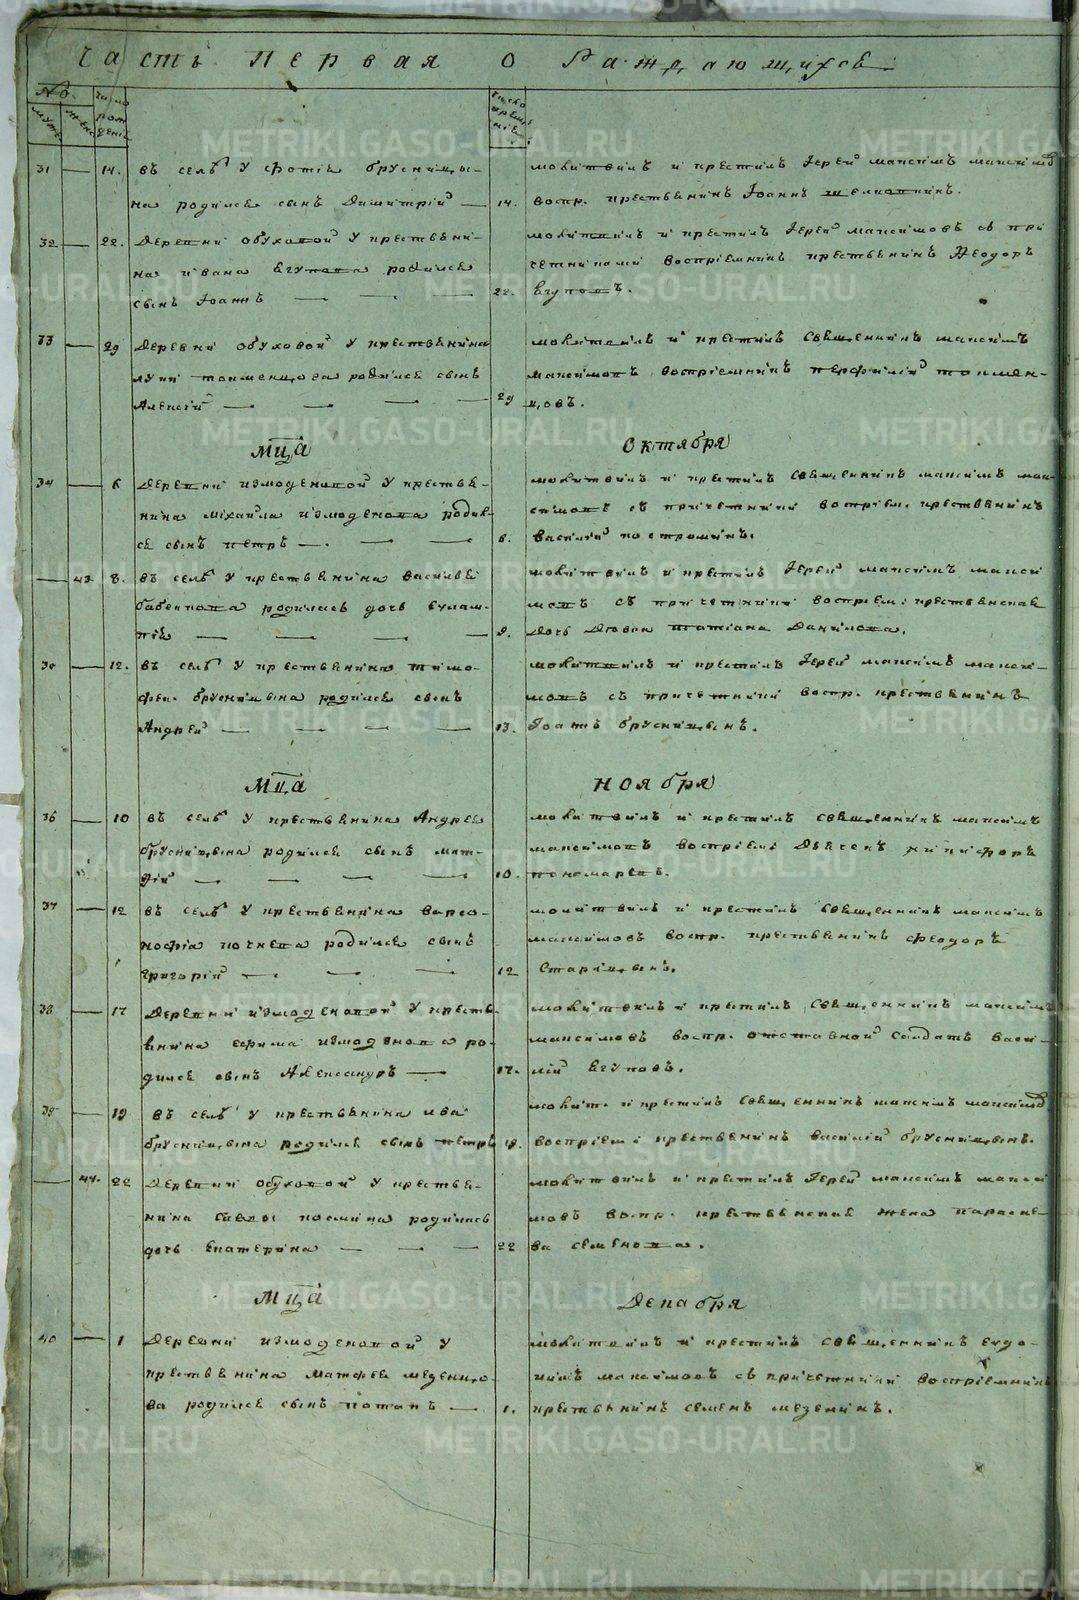 Часть Первая О Раждающихся
№
мужс
женс
число рождения
число крещения
31 — 14. въ селѣ у Фотія брусницы-
на родился сынъ Димитрій —
молитвилъ и крестилъ Іерей максимъ максимовъ
14. воспр. крестьянинъ Іоаннъ
32 — 22. Деревни обуховой у крестьяни-
на ивана Егупова родился
сынъ Іоаннъ — — —
молитвилъ и крестилъ Іерей максимовъ съ при
четниками воспріемникъ крестьянинъ Ѳеодоръ
22. Егуповъ.
33 — 29 Деревни обуховой у крестьянина
луки токменцова родился сынъ
Алексій — — — —
молитвилъ и крестилъ священникъ максимъ
максимовъ воспріемникъ перфилій токмен-
29 цовъ.
Мца Октября
34 — 6 Деревни измоденовой у крестья-
нина михаила измоденова родил-
ся сынъ петръ — — —
молитвилъ и крестилъ священникъ максимъ мак-
симовъ съ причетники воспріем. крестьянинъ
6. василій костроминъ.
— 43 8. въ селѣ у крестьянина василья
бабенкова родилась дочь евлам-
пія — — — —
молитвилъ и крестилъ Іерей максимъ макси
мовъ съ причетники воспріем: крестьянская
9. Дочь Дѣвка татіана Данилова.
12. въ селѣ у крестьянина тимо-
фея брусницына родился сынъ
Андрей — — — —
молитвилъ и крестилъ Іерей максимъ макси-
мовъ съ причетники воспр. крестьянинъ
13. брусницынъ.
Мца Ноября
36 — 10 въ селѣ у крестьянина Андрея
брусницына родился сынъ мат-
фій — — — —
молитвилъ и крестилъ священникъ максимъ
максимовъ воспріем: Дьячекъ никифоръ
10. пономаревъ.
37 — 12 въ селѣ у крестьянина варсо-
нофія почнева родился сынъ
григорій — — —
молитвилъ и крестилъ священникъ максимъ
максимовъ воспр. крестьянинъ феодоръ
12 старицынъ.
38 — 17 Деревни измоденовой у кресть-
янина ефима измоденова ро-
дился сынъ Александръ —
молитвилъ и крестилъ священникъ максимъ
максимовъ воспр. отставной солдатъ васи-
17. лій Егуповъ.
39 — 19 въ селѣ у крестьянина льва
брусницына родился сынъ петръ
молит. и крестилъ священникъ максимъ максимовъ
19. воспріем: крестьянинъ василій брусницынъ.
— 44. 22 Деревни обуховой у крестья-
нина саввы космина родилась
дочь екатерина — — —
молитвилъ и крестилъ Іерей максимъ макси
мовъ воспр. крестьянская жена параске-
22 ва семенова.
Мца Декабря
40 — 1 Деревни измоденовой у
крестьянина матфея меденцо-
ва родился сынъ потапъ —
молитвилъ и крестилъ священникъ евдо-
кимъ максимовъ съ причетники воспріемникъ
1. крестьянинъ семенъ меземинъ.